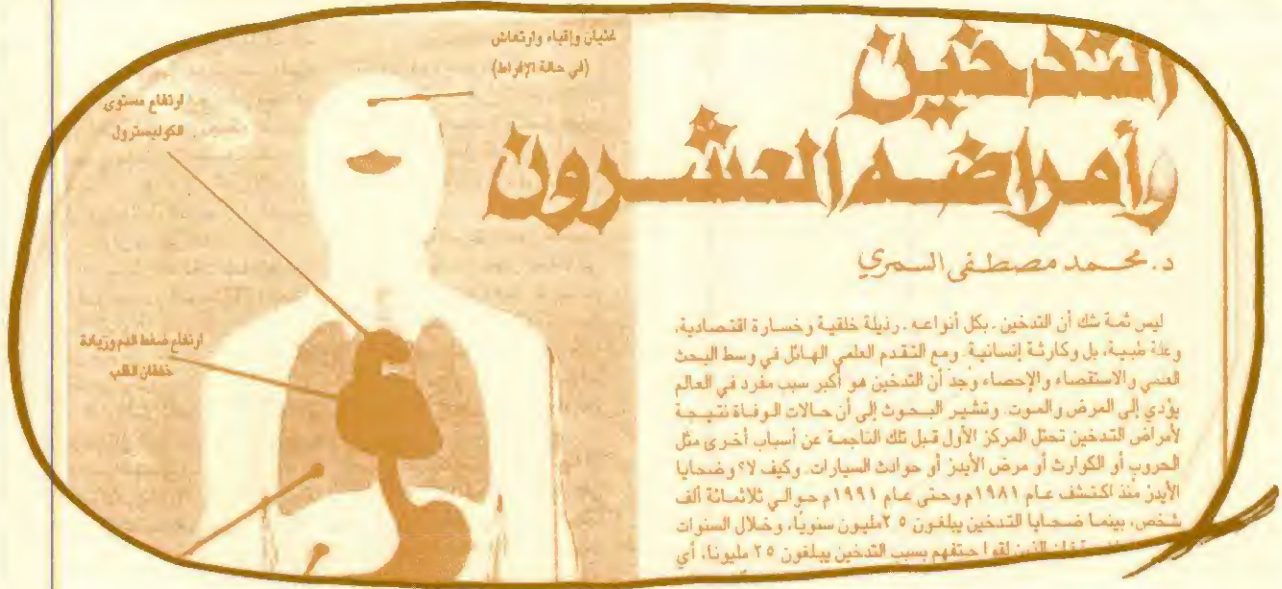 التدخين
وأمراضه العشرون
د. محمد مصطفى السمري
ليس ثمة شك أن التدخين ـ بكل أنواعه ـ رذيلة خلقية وخسارة اقتصادية،
وعلة طبية، بل وكارثة إنسانية. ومع التقدم العلمي الهائل في وسط البحث
العلمي والاستقصاء والإحصاء وجد أن التدخين هو أكبر سبب مفرد في العالم
يؤدي إلى المرض والموت. وتشير البحوث إلى أن حالات الوفاة نتيجة
لأمراض التدخين تحتل المركز الأول قبل تلك الناجمة عن أسباب أخرى مثل
الحروب أو الكوارث أو مرض الأيدز أو حوادث السيارات. وكيف لا؟ وضحايا
الأيدز منذ اكتشف عام ١٩٨١م وحتى عام ١٩٩١م حوالي ثلاثمائة ألف
شخص، بينما ضحايا التدخين يبلغون ٢٥ مليون سنويًا، وخلال السنوات
لقوا حتفهم بسبب التدخين يبلغون ٢٥ مليونا، أي
غثيان وإقياء وارتعاش
(في حالة الإفراط)
ارتفاع مستوى
الكوليسترول
ارتفاع ضغط الدم وزيادة
خفقان القلب